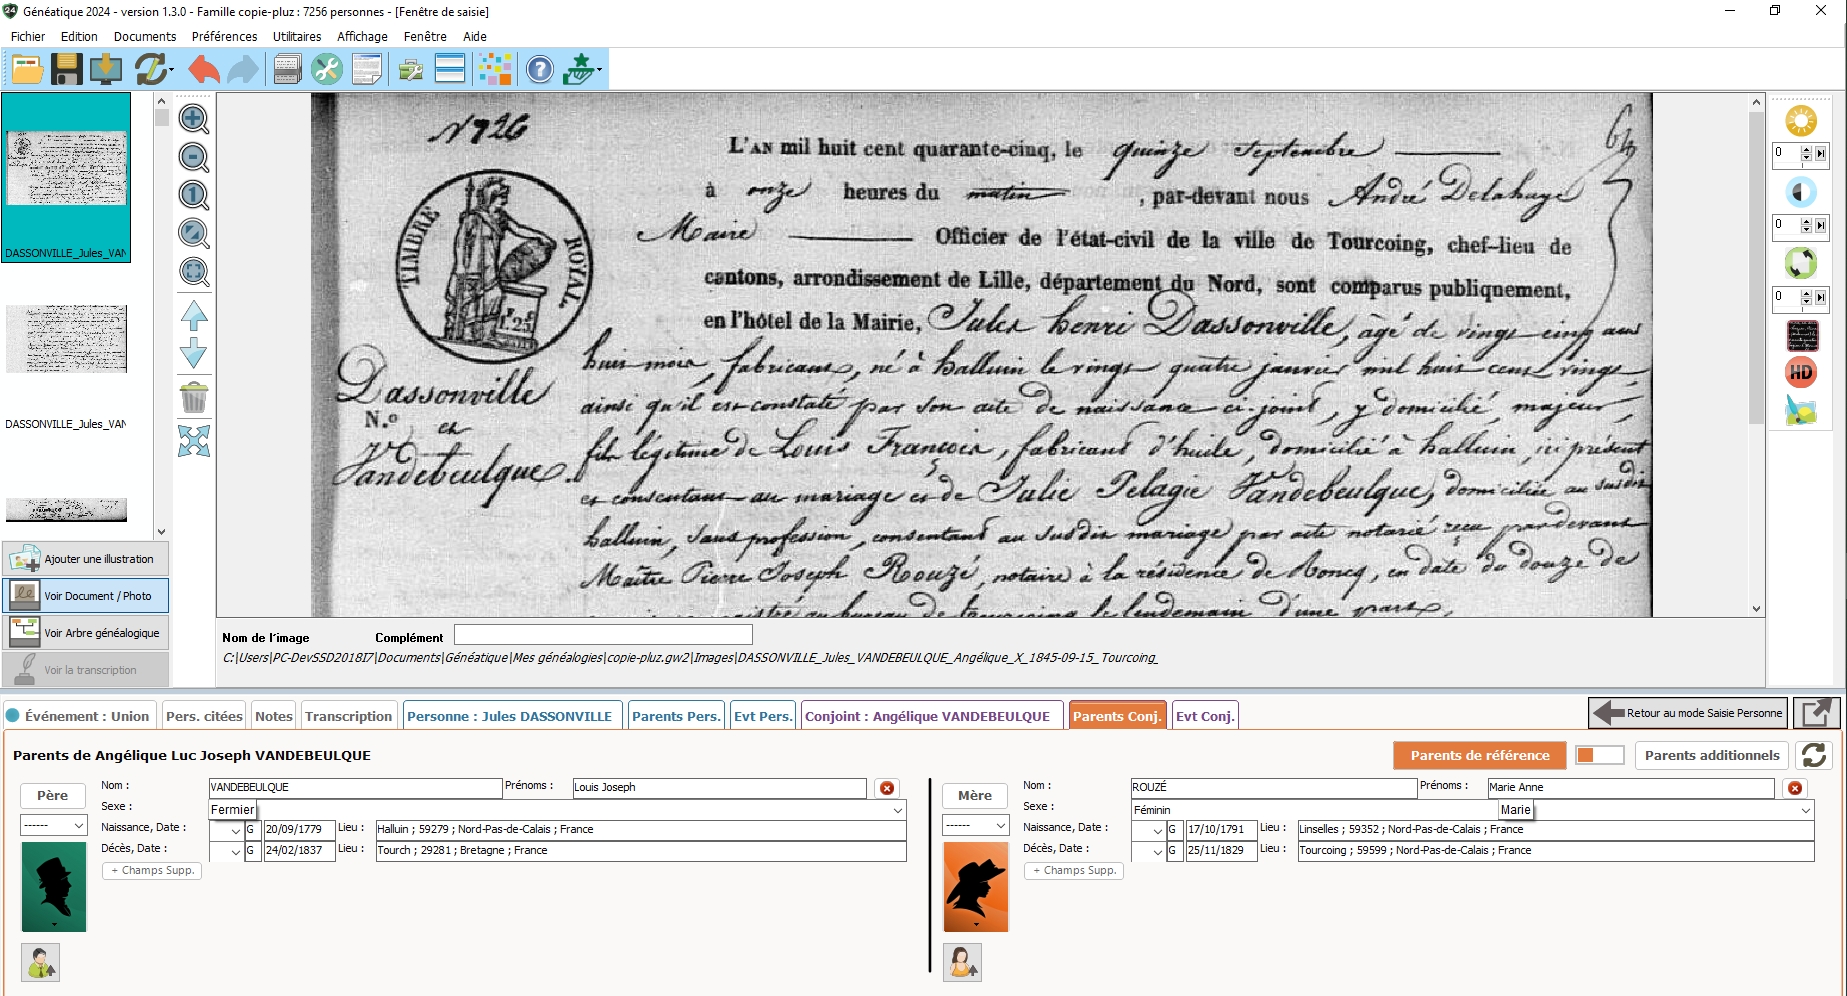 Généatique 2024 - version 1.3.0 - Famille copie-pluz : 7256 personnes - [Fenêtre de saisie]
Fichier Edition Documents Préférences Utilitaires Affichage Fenêtre Aide
DASSONVILLE_Jules_VAN
DASSONVILLE_Jules_VAN
Ajouter une illustration
Voir Document / Photo
Voir Arbre généalogique
Voir la transcription
N° 726
TIMBRE ROYAL
Dassonville
N.º et
Vandebeulque.
L'AN mil huit cent quarante-cinq, le quinze Septembre
à onze heures du matin, par-devant nous André Delahaye
Maire Officier de l'état-civil de la ville de Tourcoing, chef-lieu de
cantons, arrondissement de Lille, département du Nord, sont comparus publiquement,
en l'hôtel de la Mairie, Jules henri Dassonville, âgé de vingt cinq ans
huit mois, fabricant, né à halluin le vingt quatre janvier mil huit cent vingt
ainsi qu'il est constaté par son acte de naissance ci-joint, y domicilié, majeur,
fils légitime de Louis François, fabricant d'huile, domicilié à halluin, ici présent
et consentant au mariage et de Julie Pelagie Vandebeulque, domiciliée au susdit
halluin, sans profession, consentant au susdit mariage par acte notarié reçu pardevant
Maître Pierre Joseph Rouzé, notaire à la résidence de Roncq, en date du douze de
bureau de tourcoing le lendemain d'une part,
0
0
0
HD
Nom de l'image Complément
C:\Users\PC-DevSSD2018I7\Documents\Généatique\Mes généalogies\copie-pluz.gw2\Images\DASSONVILLE_Jules_VANDEBEULQUE_Angélique_X_1845-09-15_Tourcoing_
Événement : Union Pers. citées Notes Transcription Personne : Jules DASSONVILLE Parents Pers. Evt Pers. Conjoint : Angélique VANDEBEULQUE Parents Conj. Evt Conj. Retour au mode Saisie Personne
Parents de Angélique Luc Joseph VANDEBEULQUE Parents de référence Parents additionnels
Père
------
Nom : VANDEBEULQUE Prénoms : Louis Joseph
Sexe : Fermier
Naissance, Date : G 20/09/1779 Lieu : Halluin ; 59279 ; Nord-Pas-de-Calais ; France
Décès, Date : G 24/02/1837 Lieu : Tourch ; 29281 ; Bretagne ; France
+ Champs Supp.
Mère
------
Nom : ROUZÉ Prénoms : Marie Anne
Sexe : Féminin Marie
Naissance, Date : G 17/10/1791 Lieu : Linselles ; 59352 ; Nord-Pas-de-Calais ; France
Décès, Date : G 25/11/1829 Lieu : Tourcoing ; 59599 ; Nord-Pas-de-Calais ; France
+ Champs Supp.